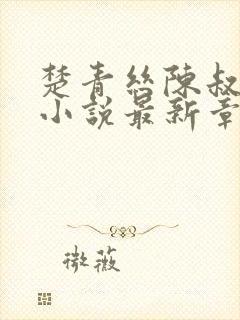 楚青絲陳叔
小說最新章
微薇